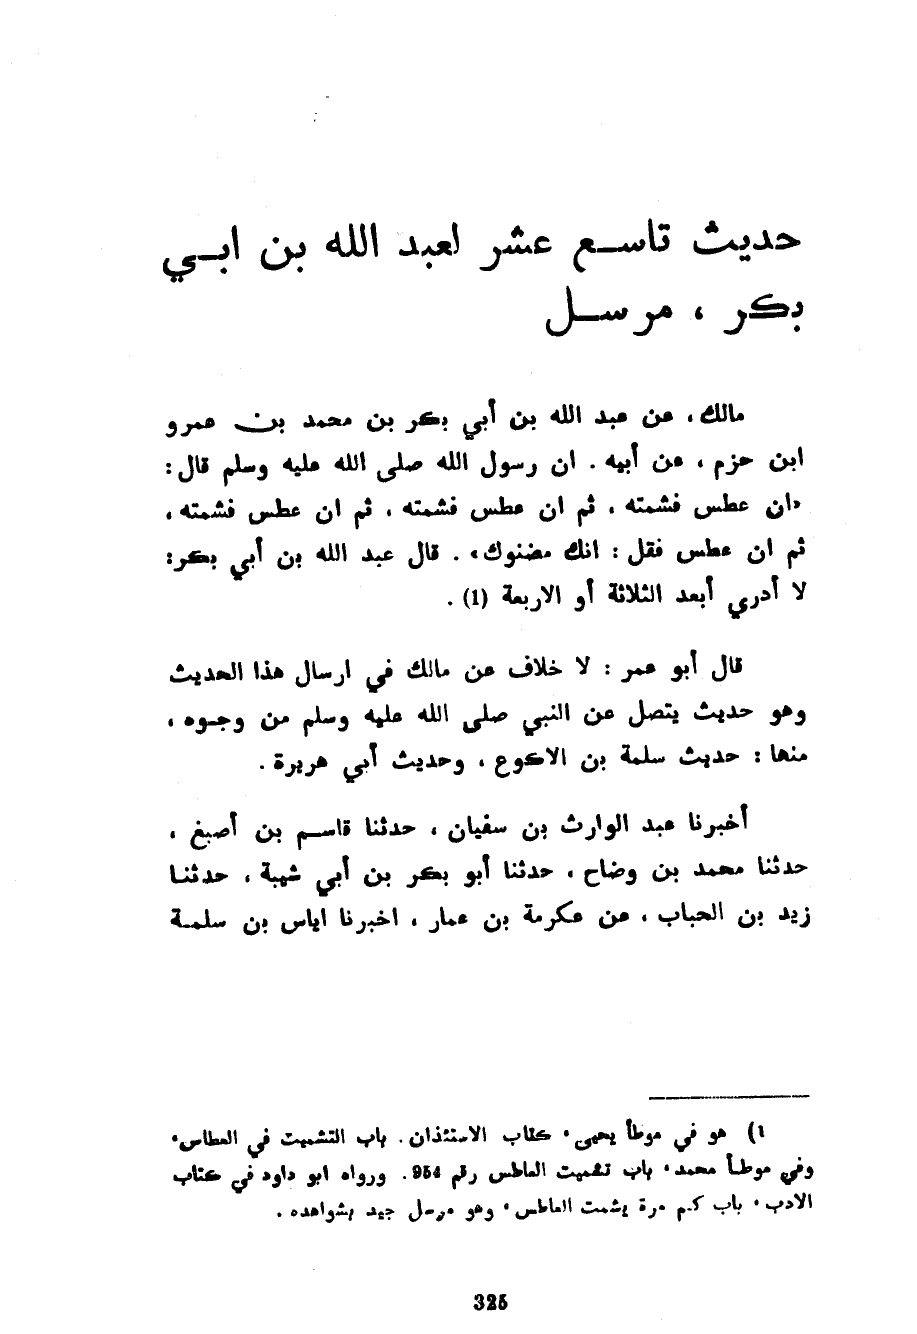 حديث تاسع عشر لعبد الله بن ابي
بكر ، مرسل
مالك، عن عبد الله بن أبي بكر بن محمد بن عمرو
ابن حزم ، عن أبيه . ان رسول الله صلى الله عليه وسلم قال :
«ان عطس فشمته ، ثم ان عطس فشمته ، ثم ان عطس فشمته ،
ثم ان عطس فقل : انك مضنوك» . قال عبد الله بن أبي بكر :
لا أدري أبعد الثلاثة أو الاربعة (1) .
قال أبو عمر : لا خلاف عن مالك في ارسال هذا الحديث
وهو حديث يتصل عن النبي صلى الله عليه وسلم من وجوه ،
منها : حديث سلمة بن الاكوع ، وحديث أبي هريرة .
أخبرنا عبد الوارث بن سفيان ، حدثنا قاسم بن أصبغ ،
حدثنا محمد بن وضاح ، حدثنا أبو بكر بن أبي شيبة ، حدثنا
زيد بن الحباب ، عن عكرمة بن عمار ، اخبرنا اياس بن سلمة
1) هو في موطأ يحيى، كتاب الاستئذان . باب التشميت في العطاس،
وفي موطأ محمد، باب تشميت العاطس رقم 954 . ورواه ابو داود في كتاب
الادب، باب كم مرة يشمت العاطس، وهو مرسل جيد بشواهده .
325